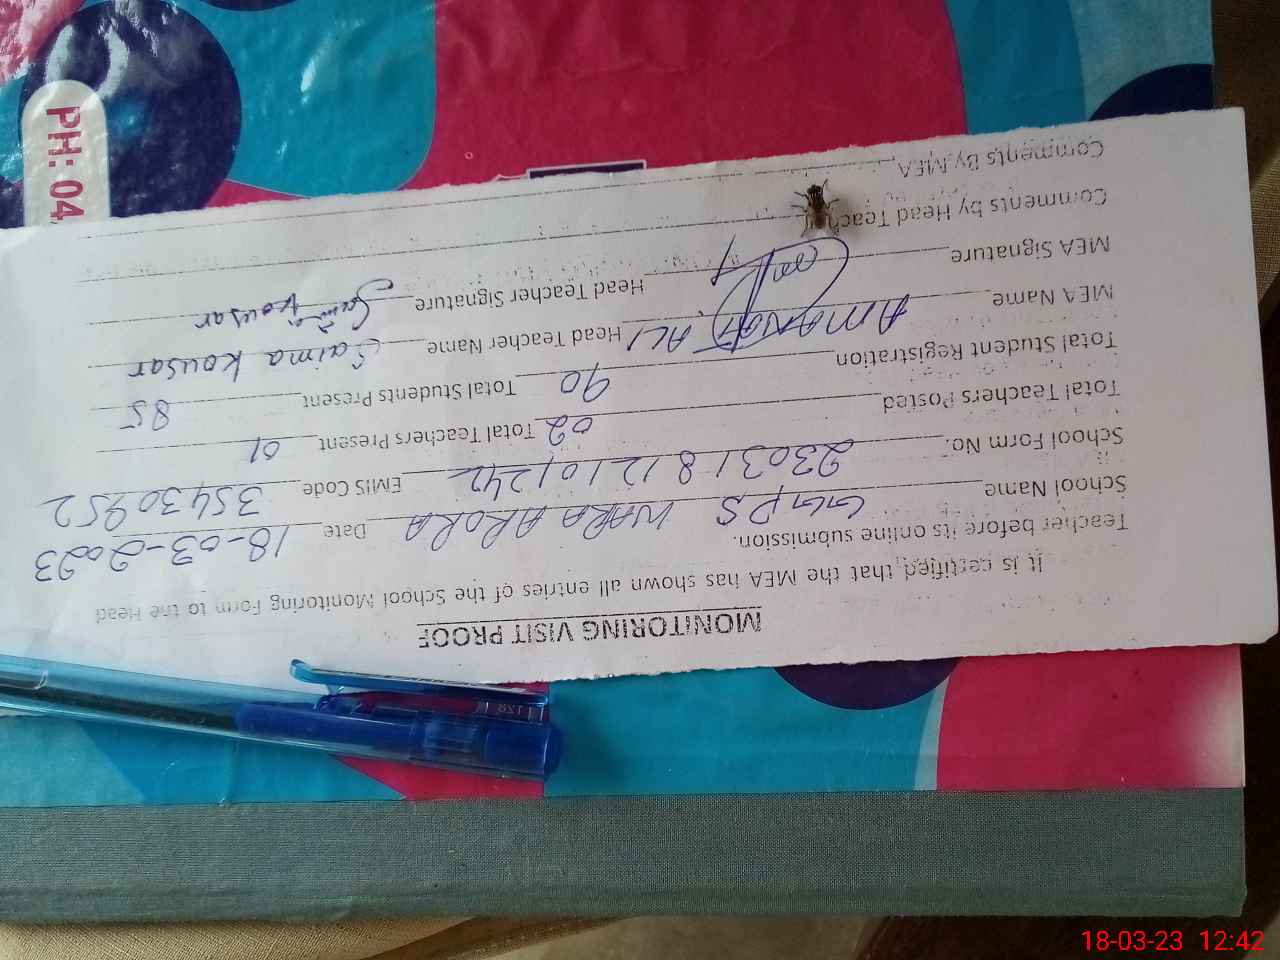 MONITORING VISIT PROOF
It is certified that the MEA has shown all entries of the School Monitoring Form to the Head
Teacher before its online submission.
School Name GGPS WARA ARORA Date 18-03-2023
School Form No. 23031812101242 EMIS Code 35430952
Total Teachers Posted 02 Total Teachers Present 01
Total Student Registration 90 Total Students Present 85
MEA Name AMANAT ALI Head Teacher Name Saima Kousar
MEA Signature Head Teacher Signature Saima Kousar
Comments by Head Teach
Comments By MEA
PH: 04
18-03-23 12:42